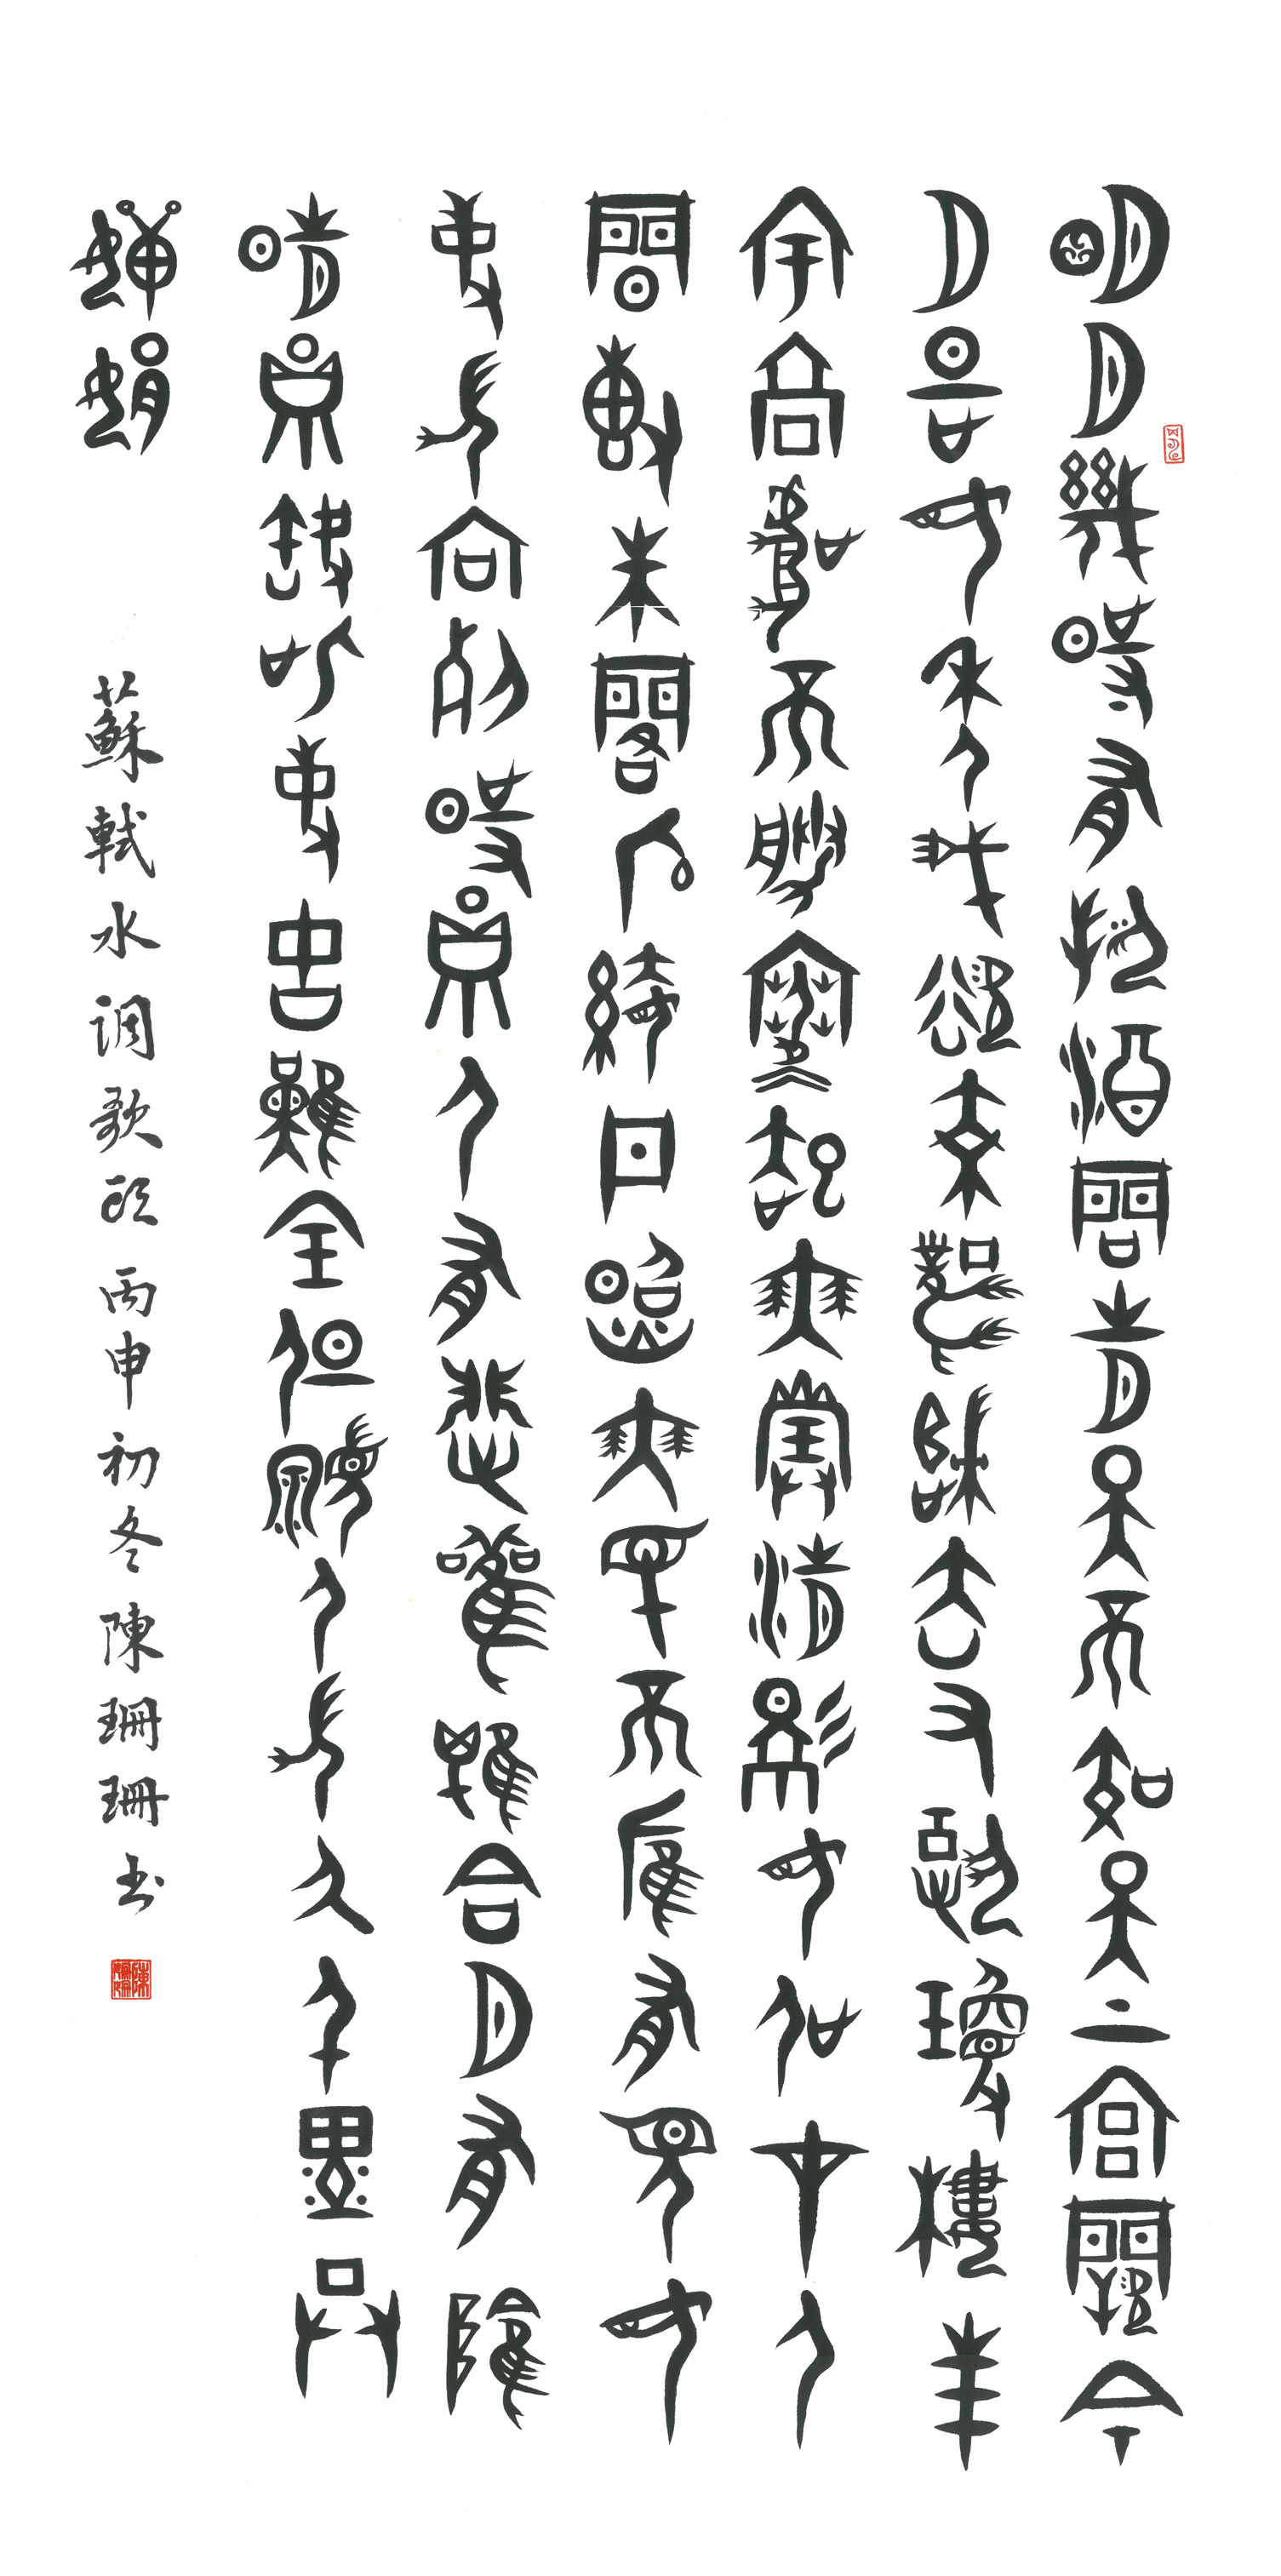 明月幾時有把酒問青天不知天上宮闕今
夕是何年我欲乘風歸去又恐瓊樓玉
宇高處不勝寒起舞弄清影何似在人
間轉朱閣低綺戶照無眠不應有恨何
事長向別時圓人有悲歡離合月有陰
晴圓缺此事古難全但願人長久千里共
嬋娟
蘇軾水调歌頭 丙申初冬陳珊珊书